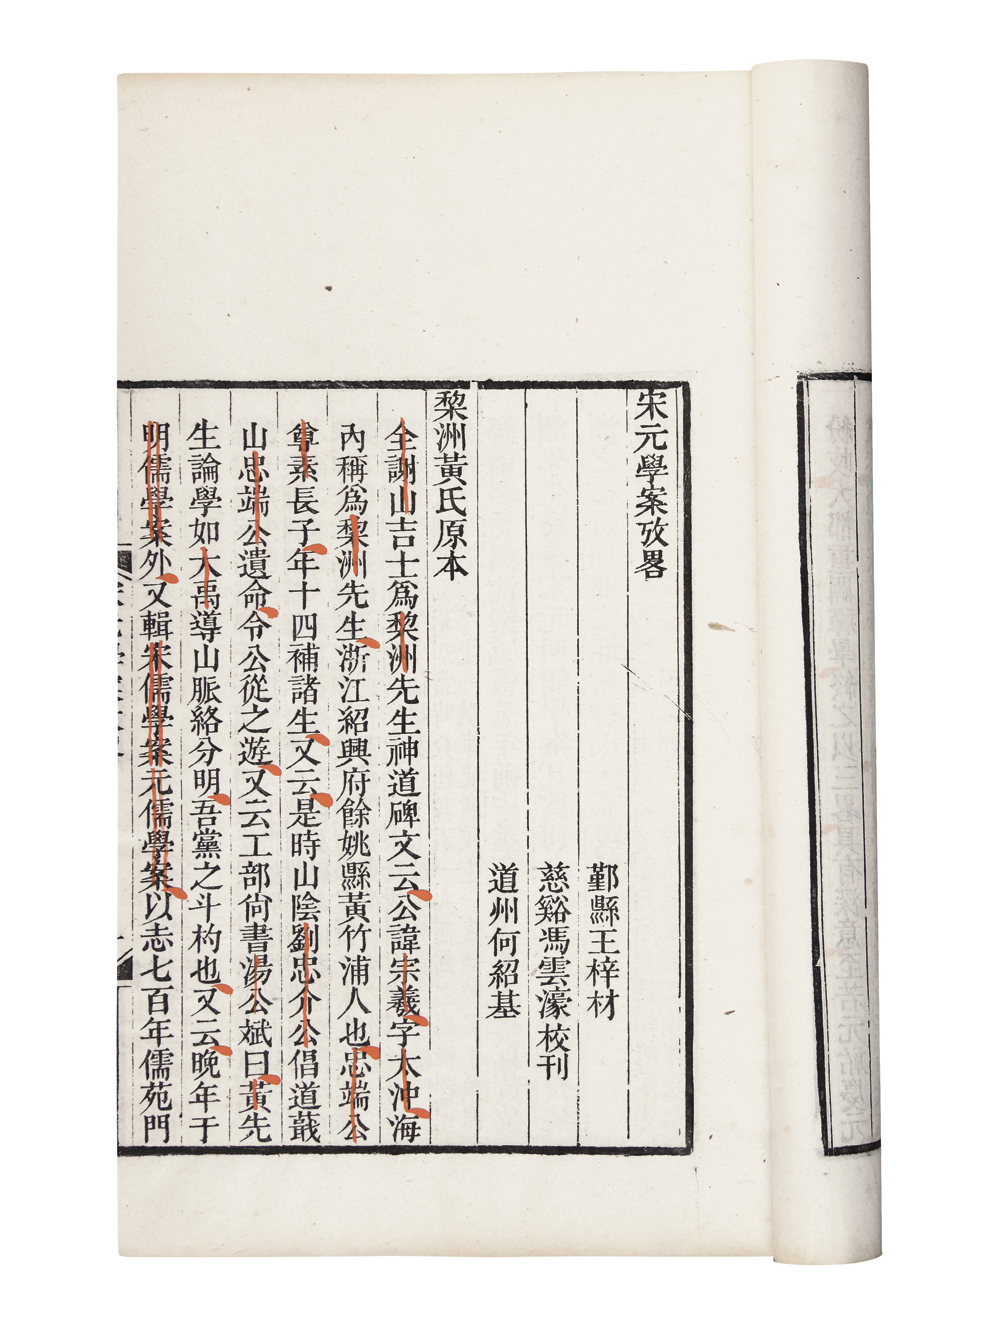 宋元學案攷畧
鄞縣王梓材
慈谿馮雲濠校刊
道州何紹基
棃洲黃氏原本
全謝山吉士爲棃洲先生神道碑文云公諱宗羲字太沖海
內稱爲棃洲先生浙江紹興府餘姚縣黃竹浦人也忠端公
尊素長子年十四補諸生又云是時山陰劉忠介公倡道蕺
山忠端公遺命令公從之遊又云工部尙書湯公斌曰黃先
生論學如大禹導山脈絡分明吾黨之斗杓也又云晚年于
明儒學案外又輯宋儒學案元儒學案以志七百年儒苑門